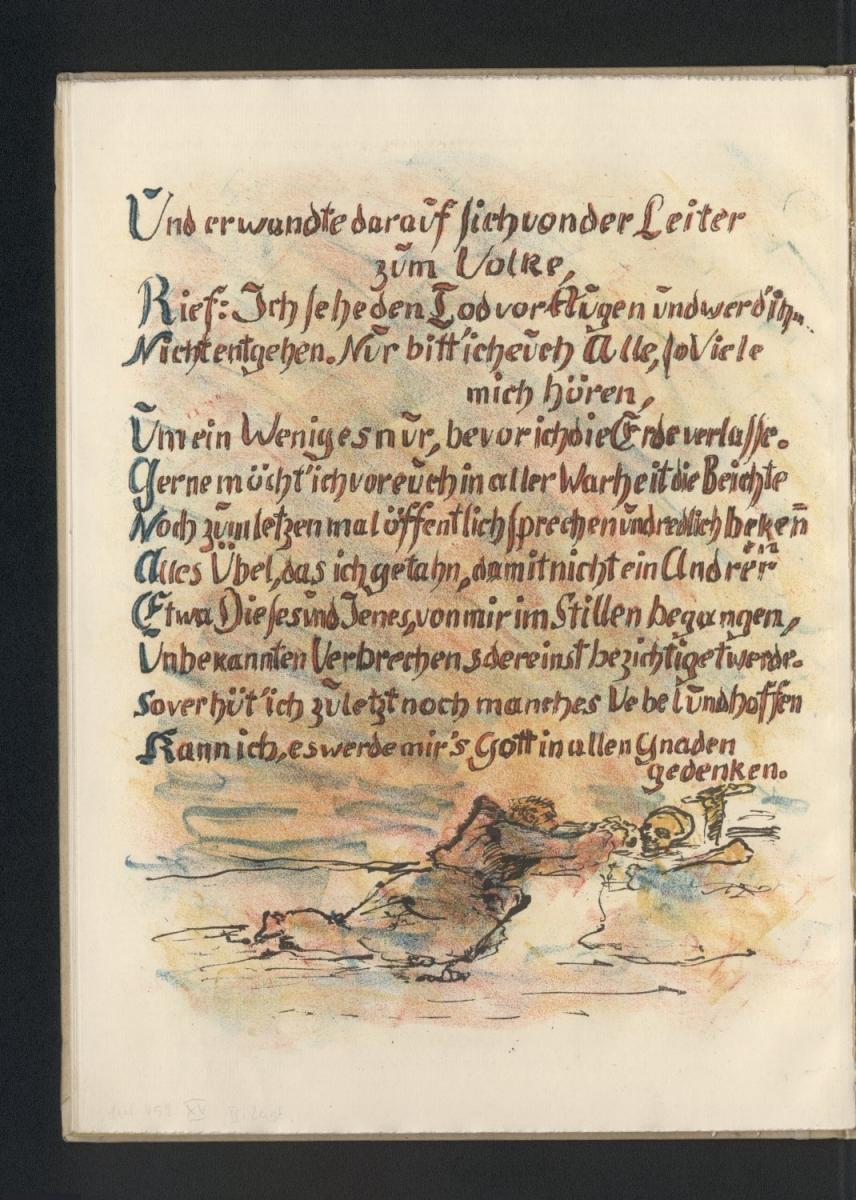 Und er wandte darauf sich von der Leiter
zum Volke,
Rief: Ich sehe den Tod vor Augen und werd' ihm
Nicht entgehen. Nur bitt' ich euch Alle, so Viele
mich hören,
Um ein Weniges nur, bevor ich die Erde verlasse.
Gerne möcht' ich vor euch in aller Warheit die Beichte
Noch zum letzen mal öffentlich sprechen und redlich beken̄
en
Alles Übel, das ich getahn, damit nicht ein Andrer
Etwa Dieses und Jenes, von mir im Stillen begangen,
Unbekannten Verbrechens dereinst bezichtiget werde.
So verhüt' ich zuletzt noch manches Uebel und hoffen
Kann ich, es werde mir's Gott in allen Gnaden
gedenken.